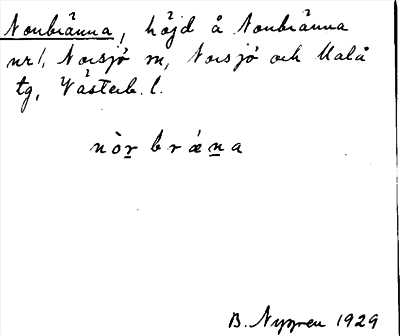 Norrbränna, höjd å Norrbränna
nr 1, Norsjö sn, Norsjö och Malå
tg, Västerb. l.
nòr̲bræn̲a
B. Nygren 1929